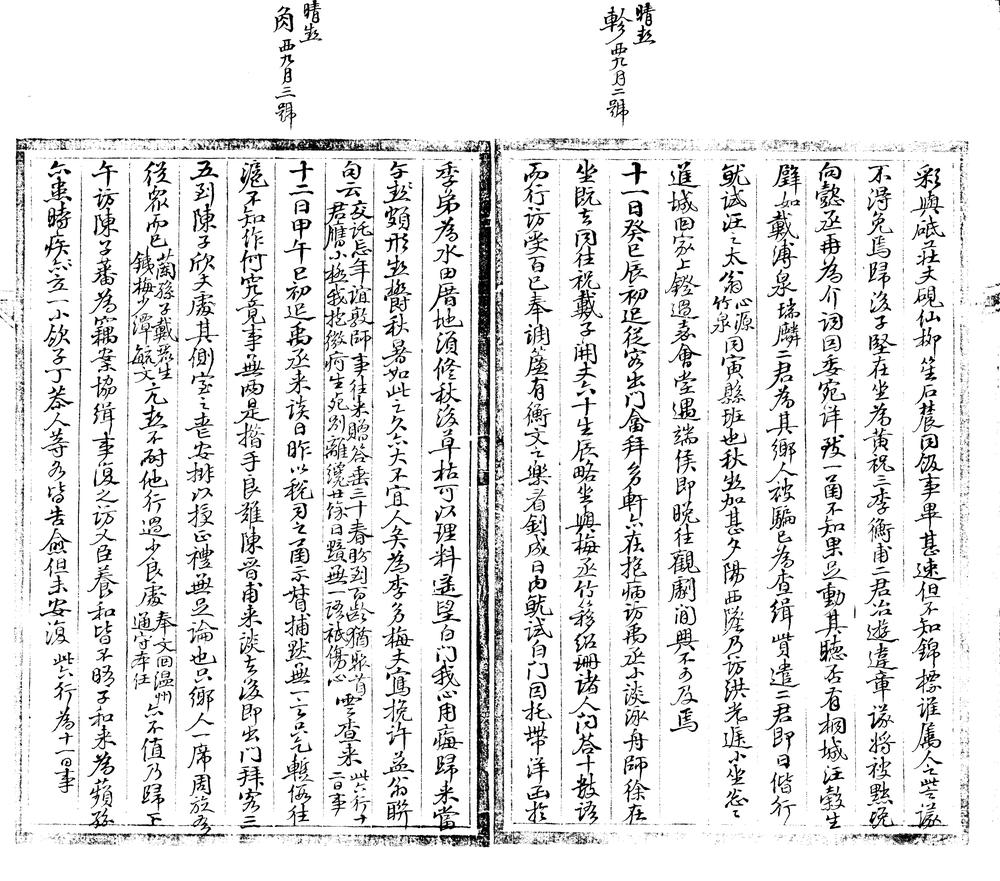 晴熱
軫 西九月二號
彩與砥莊文硯仙柳笙石農同飯事畢甚速但不知錦標誰屬人之皆議
不得免焉歸後子堅在坐為黃祝三李衡甫二君冶遊違章議將被黜挽
向懿丞冉為介詞因委宛詳致一函不知果足動其聽否有桐城汪穀生
譬如戴溥泉瑞麟二君為其鄉人被騙已為查緝貲遣二君即日偕行
觥試汪之太翁心源竹泉同寅縣班也秋熱加甚夕陽西墜乃訪洪老遲小坐怱々
進城回家上鐙過嘉會堂遇端侯即晚往觀劇間興不可及焉
十一日癸巳辰初起從容出門會拜多軒六在抱病訪禹丞小談泳舟師徐在
坐既去同往祝戴子開丈六十生辰略坐與梅丞竹移紹珊諸人問答十數語
而行訪雯百已奉調簾有衡文之樂看釗成日內觥試白門因托帶洋函於
晴熱
角 西九月三號
季弟為水田厝地須修秋後草枯可以理料遙望白門我心用痗歸來當
午熱頗形熱鬱秋暑如此之久六大不宜人矣為李多梅丈寫挽許益翁聯
句云交託忘年誼敦師事往來贈答垂三十春盼到百齡猶聚首
君膺小極我抱微疴生死別離纔廿餘日竟無一語祇傷心 雲查來 此六行十二日事
十二日甲午巳初起禹丞來談日昨以稅司之函示督捕默無一言只乞暫假往
滬不知作何究竟事無兩是措手良難陳晉甫來談去後即出門拜客三
五到陳子欣丈處其側室之喪安排以授正禮無足論也只鄉人一席周旋多
從眾而已蘭孫子戴蓉生鐵梅少潭毓文亢熱不耐他行過少良處奉文回溫州通守本任六不值乃歸下
午訪陳子蕃為竊案協緝事復之訪文臣養和皆不晤子和來為蘋孫
六患時疾六立一小飲子丁答人等者皆告愈但未安復 此六行為十一日事